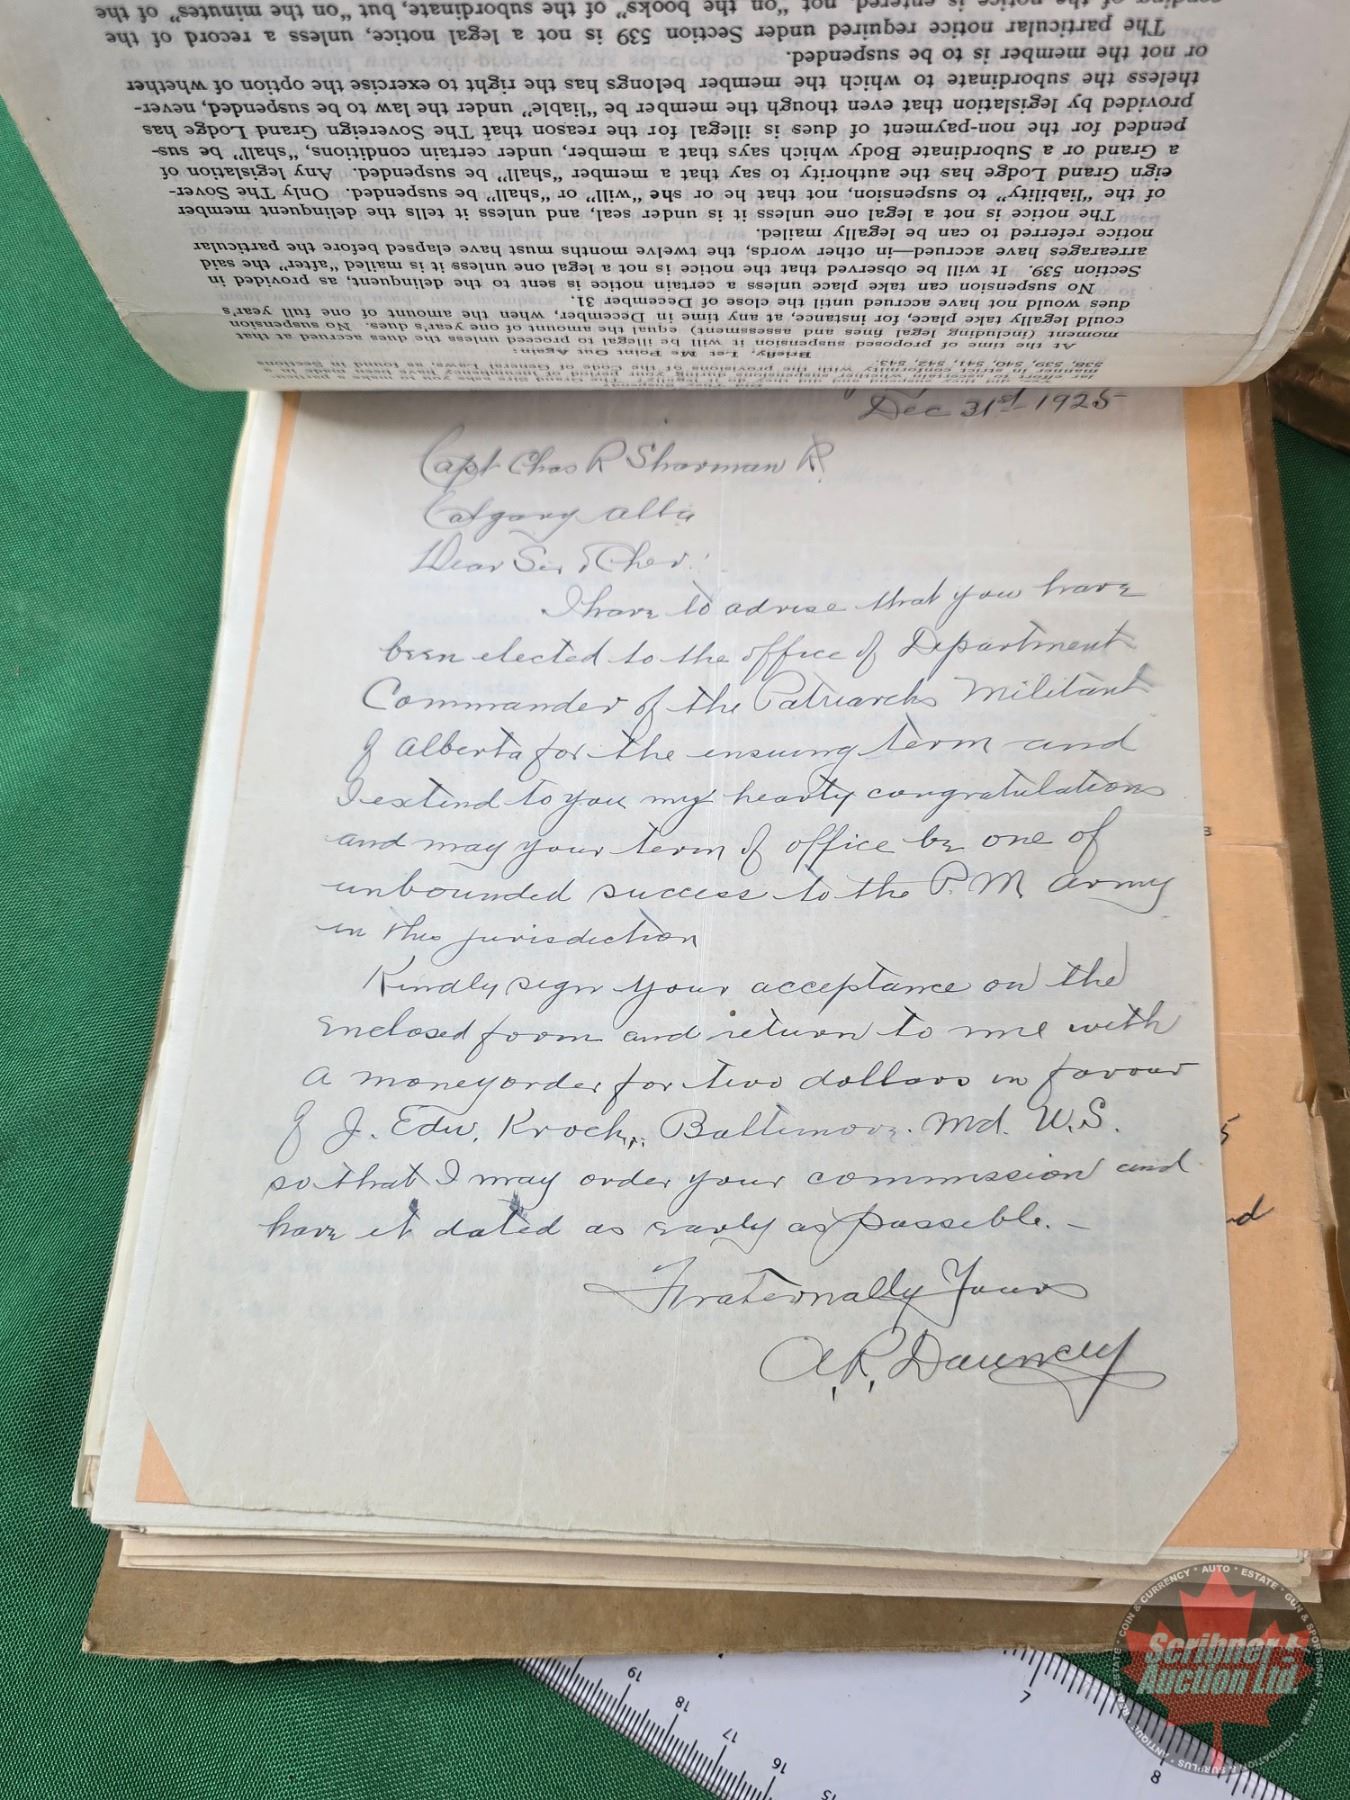 ceeding of the notice is entered, not "on the books" of the subordinate, but "on the minutes" of the
The particular notice required under Section 539 is not a legal notice, unless a record of the
or not the member is to be suspended.
theless the subordinate to which the member belongs has the right to exercise the option of whether
provided by legislation that even though the member be "liable" under the law to be suspended, never-
pended for the non-payment of dues is illegal for the reason that The Sovereign Grand Lodge has
a Grand or a Subordinate Body which says that a member, under certain conditions, "shall" be sus-
eign Grand Lodge has the authority to say that a member "shall" be suspended. Any legislation of
of the "liability" to suspension, not that he or she "will" or "shall" be suspended. Only The Sover-
The notice is not a legal one unless it is under seal, and unless it tells the delinquent member
notice referred to can be legally mailed.
arrearages have accrued—in other words, the twelve months must have elapsed before the particular
Section 539. It will be observed that the notice is not a legal one unless it is mailed "after" the said
No suspension can take place unless a certain notice is sent to the delinquent, as provided in
dues would not have accrued until the close of December 31.
could legally take place, for instance, at any time in December, when the amount of one full year's
moment (including legal fines and assessment) equal the amount of one year's dues. No suspension
At the time of proposed suspension it will be illegal to proceed unless the dues accrued at that
Briefly, Let Me Point Out Again:
538, 539, 540, 541, 542, 543.
manner in strict conformity with the provisions of the Code of General Laws, as found in Sections
Dec 31st 1925
Capt Chas R Sharman R.
Calgary Alba
Dear Sir & Chev:
I have to advise that you have
been elected to the office of Department
Commander of the Patriarchs Militant
of Alberta for the ensuing term and
I extend to you my hearty congratulations
and may your term of office be one of
unbounded success to the P. M. army
in this jurisdiction
Kindly sign your acceptance on the
enclosed form and return to me with
a moneyorder for two dollars in favour
of J. Edw. Kroch, Baltimore. Md. U.S.
so that I may order your commission and
have it dated as early as possible. –
Fraternally Yours
A. R. Dauncey
3
5
nd
19
18
17
16
15
7
8
COIN & CURRENCY • AUTO • ESTATE • GUN & SPORTSMAN • FARM • LIQUIDATION • SURPLUS • ANTIQUE • REAL ESTATE
Scribner
Auction Ltd.